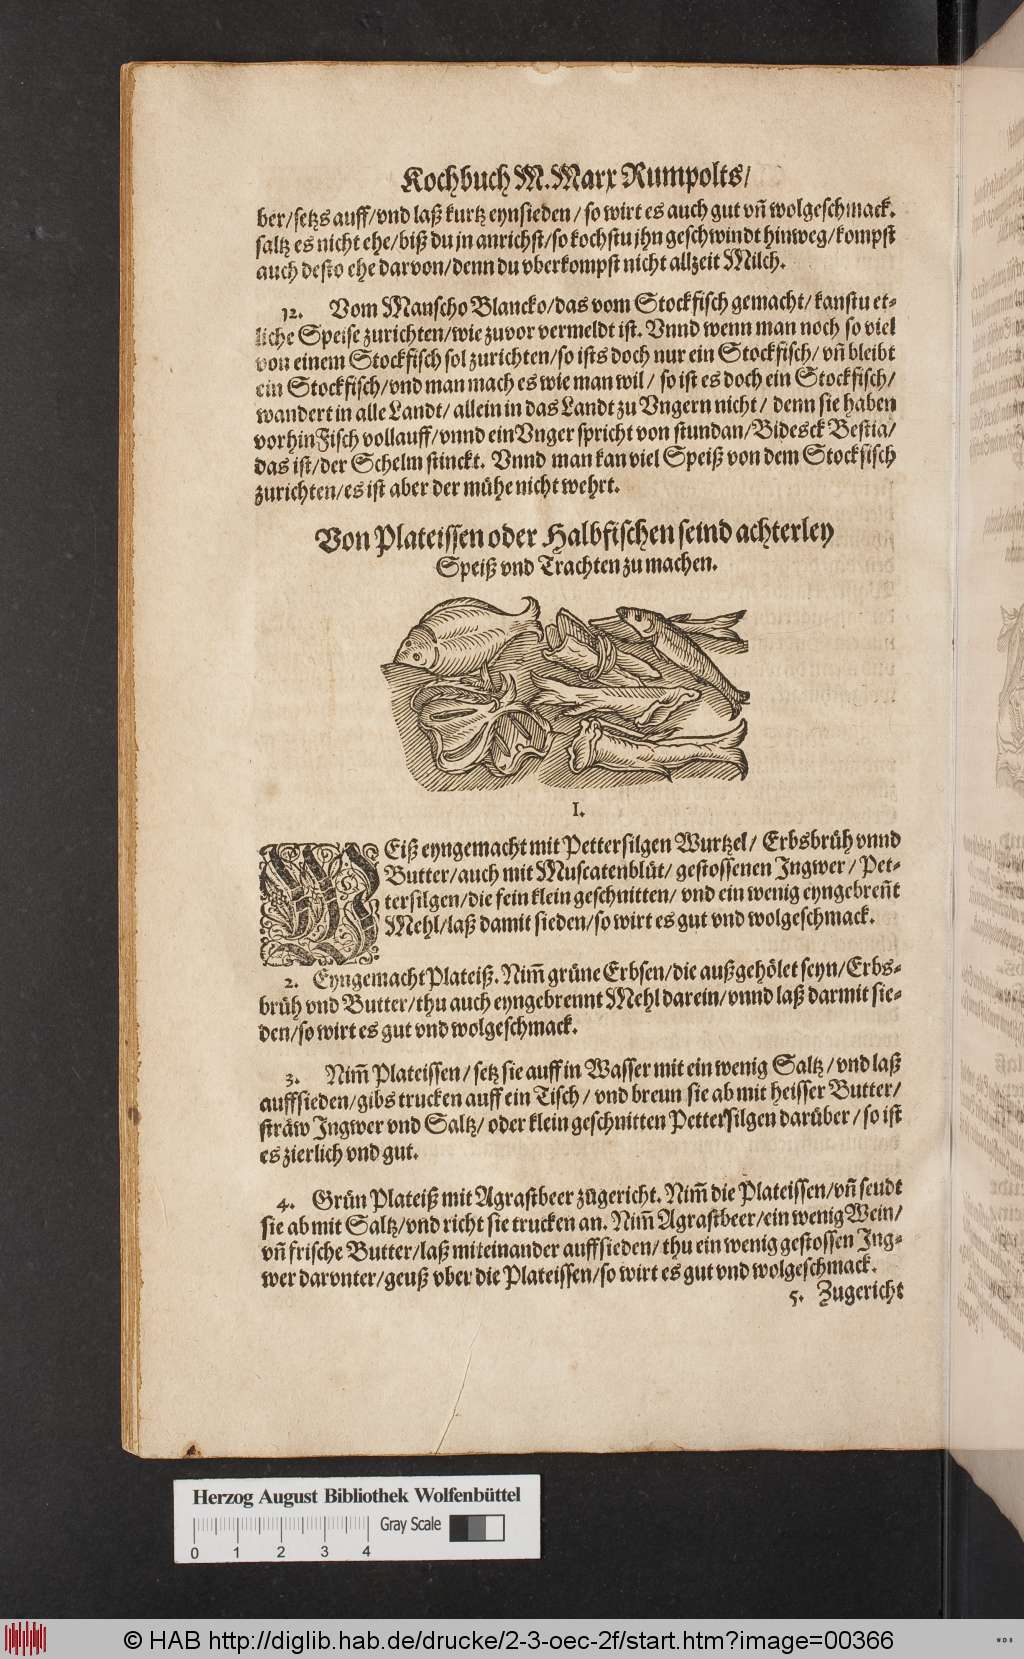 Kochbuch M. Marx Rumpolts/
ber/setzs auff/vnd laß kurtz eynsieden/so wirt es auch gut vñ wolgeschmack.
saltz es nicht ehe/biß du jn anrichst/so kochstu jhn geschwindt hinweg/kompst
auch desto ehe darvon/denn du vberkompst nicht allzeit Milch.
12. Vom Manscho Blancko/das vom Stockfisch gemacht/kanstu et-
liche Speise zurichten/wie zuvor vermeldt ist. Vnnd wenn man noch so viel
von einem Stockfisch sol zurichten/so ists doch nur ein Stockfisch/vñ bleibt
ein Stockfisch/vnd man mach es wie man wil/so ist es doch ein Stockfisch/
wandert in alle Landt/allein in das Landt zu Vngern nicht/denn sie haben
vorhin Fisch vollauff/vnnd ein Vnger spricht von stundan/Bidesck Bestia/
das ist/der Schelm stinckt. Vnnd man kan viel Speiß von dem Stockfisch
zurichten/es ist aber der mühe nicht wehrt.
Von Plateissen oder Halbfischen seind achterley
Speiß vnd Trachten zu machen.
I.
WEiß eyngemacht mit Pettersilgen Wurtzel/Erbsbrüh vnnd
Butter/auch mit Muscatenblüt/gestossenen Ingwer/Pet-
tersilgen/die fein klein geschnitten/vnd ein wenig eyngebreñt
Mehl/laß damit sieden/so wirt es gut vnd wolgeschmack.
2. Eyngemacht Plateiß. Nim̃ grüne Erbsen/die außgehölet seyn/Erbs-
brüh vnd Butter/thu auch eyngebrennt Mehl darein/vnnd laß darmit sie-
den/so wirt es gut vnd wolgeschmack.
3. Nim̃ Plateissen/setz sie auff in Wasser mit ein wenig Saltz/vnd laß
auffsieden/gibs trucken auff ein Tisch/vnd breun sie ab mit heisser Butter/
sträw Ingwer vnd Saltz/oder klein geschnitten Pettersilgen darüber/so ist
es zierlich vnd gut.
4. Grün Plateiß mit Agrastbeer zugericht. Nim̃ die Plateissen/vñ seudt
sie ab mit Saltz/vnd richt sie trucken an. Nim̃ Agrastbeer/ein wenig Wein/
vñ frische Butter/laß miteinander auffsieden/thu ein wenig gestossen Ing-
wer darvnter/geuß vber die Plateissen/so wirt es gut vnd wolgeschmack.
5. Zugericht
Herzog August Bibliothek Wolfenbüttel
Gray Scale
0 1 2 3 4
© HAB http://diglib.hab.de/drucke/2-3-oec-2f/start.htm?image=00366